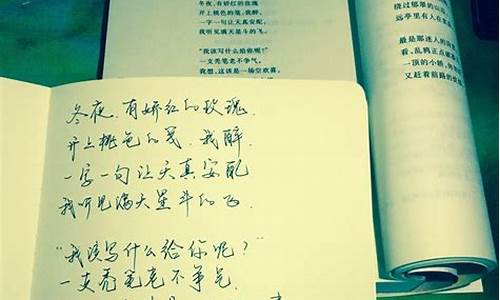 冬夜,有娇红的玫瑰
开上桃色的笺,我醉,
一字一句让天真安配,
我听见满天星斗的飞。
“我该写什么给你呢?”
一支秃笔老不争气。
我想,这该是一场空欢喜。
绕过郁翠的山
远亭里有人在
最是那迷人的
看,乱鸦正点破
一顶的小轿,
又赶着前路的
冬夜,有娇红的玫瑰,
开上桃色的笺,我醉,
一字一句让天真安配
我听见满天星斗的飞.
“我该写什么给你呢?”
一支秃笔老不争气.